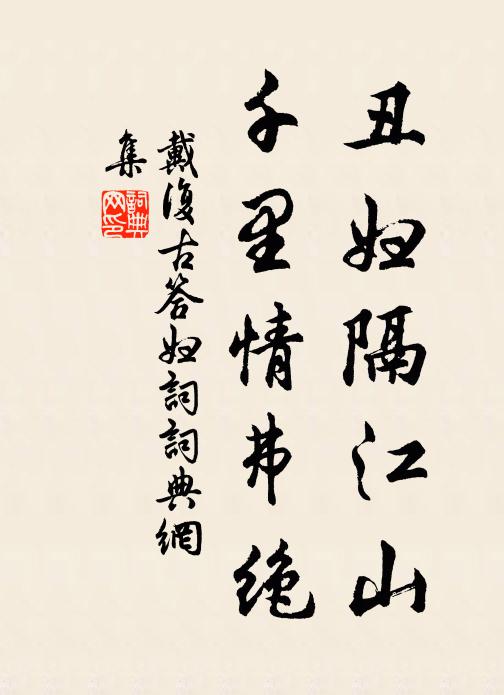 丑妇隔江山
千里情弗绝
戴復古答妇詞詞典網
集
詞典
网印